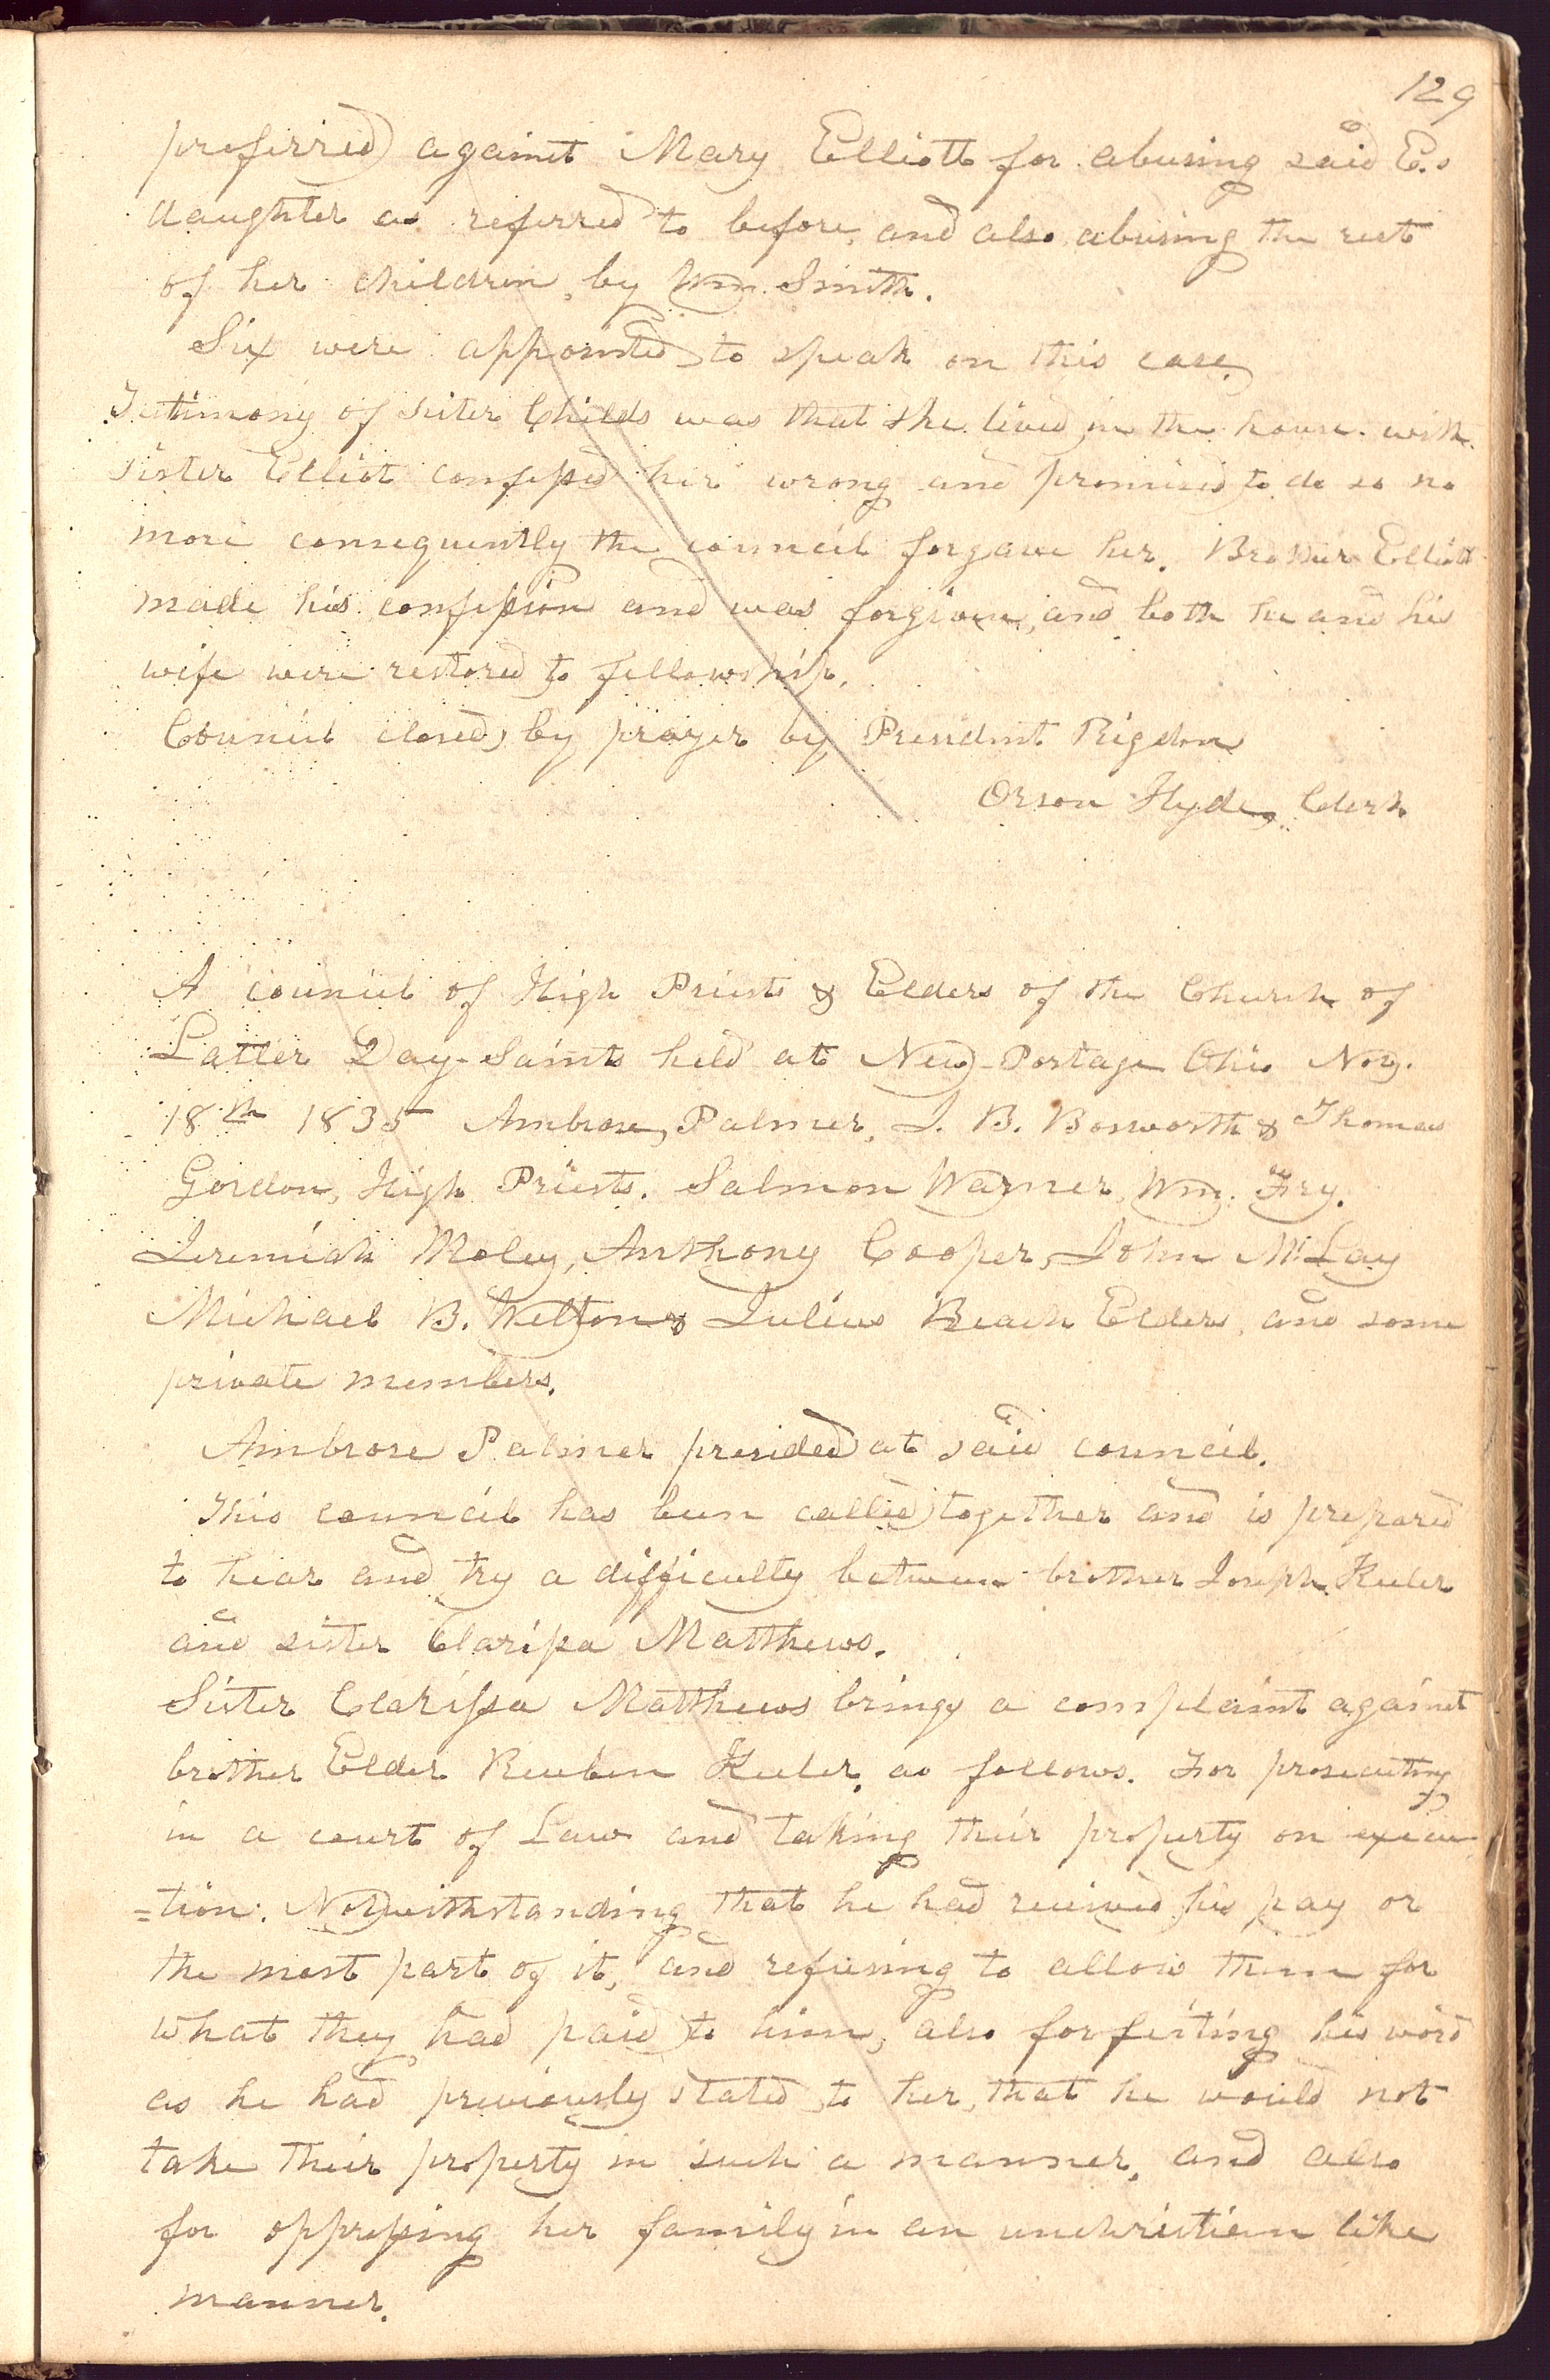 129
preferred against Mary Elliott for abusing said E.s
daughter as referred to before, and also abusing the rest
of her children, by Wm. Smith.
Six were appointed to speak on this case.
Testimony of sister Childs was that she lived in the house with
sister Elliot confessed her wrong and promised to do so no
more consequently the council forgave her. Brother Elliott
made his confession and was forgiven, and both he and his
wife were restored to fellowship.
Council closed, by prayer by President Rigdon
Orson Hyde, Clerk
A council of High Priests & Elders of the Church of
Latter Day-Saints held at New-Portage Ohio Nov.
18th 1835 Ambrose, Palmer, J. B. Bosworth & Thomas
Gordon, High Priests. Salmon Warner, Wm. Fry.
Jeremiah Moley, Anthony Cooper, John McLay
Michael B. Welton & Julius Beach Elders, and some
private members.
Ambrose Palmer presided at said council.
This council has been called together and is prepared
to hear and try a difficulty between brother Joseph Keeler
and sister Clarissa Matthews.
Sister Clarissa Matthews brings a complaint against
brother Elder Reuben Keeler, as follows. For prosecuting
in a court of Law and taking their property on execu-
=tion. Notwithstanding that he had received his pay or
the most part of it, and refusing to allow them for
what they had paid to him, also forfeiting his word
as he had previously stated to her, that he would not
take their property in such a manner, and also
for oppressing her family in an unchristian like
manner.